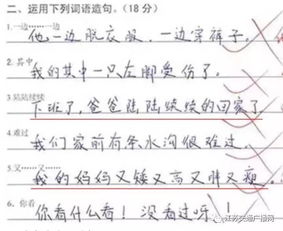 二、运用下列词语造句。(18分)
1.一边……一边……
他一边脱衣服,一边穿裤子。
2.其中
我的其中一只左脚受伤了。
3.陆陆续续
下班了,爸爸陆陆续续的回家了
4.难过
我们家前有条水沟很难过。
5.又……又……
我的妈妈又矮又高又胖又瘦。
6.你看
你看什么看!没看过呀!
江苏交通广播网